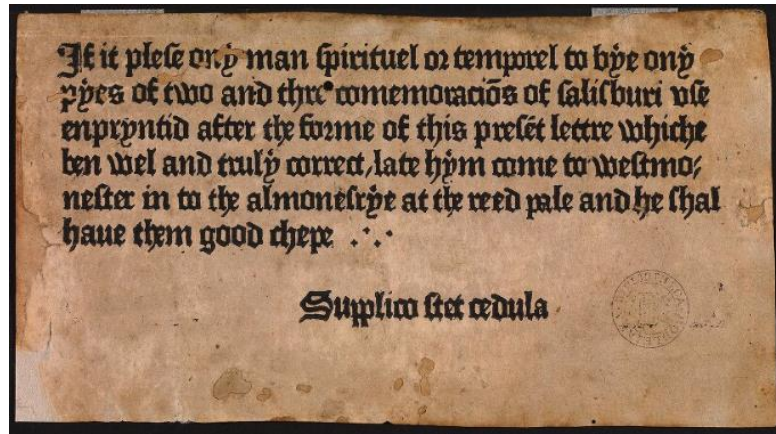 If it plese ony man spirituel or temporel to bye ony
pyes of two and thre comemoraciōs of salisburi vse
enpryntid after the forme of this presēt lettre whiche
ben wel and truly correct, late hym come to westmo⸗
nester in to the almonesrye at the reed pale and he shal
haue them good chepe .·.·
Supplico stet cedula